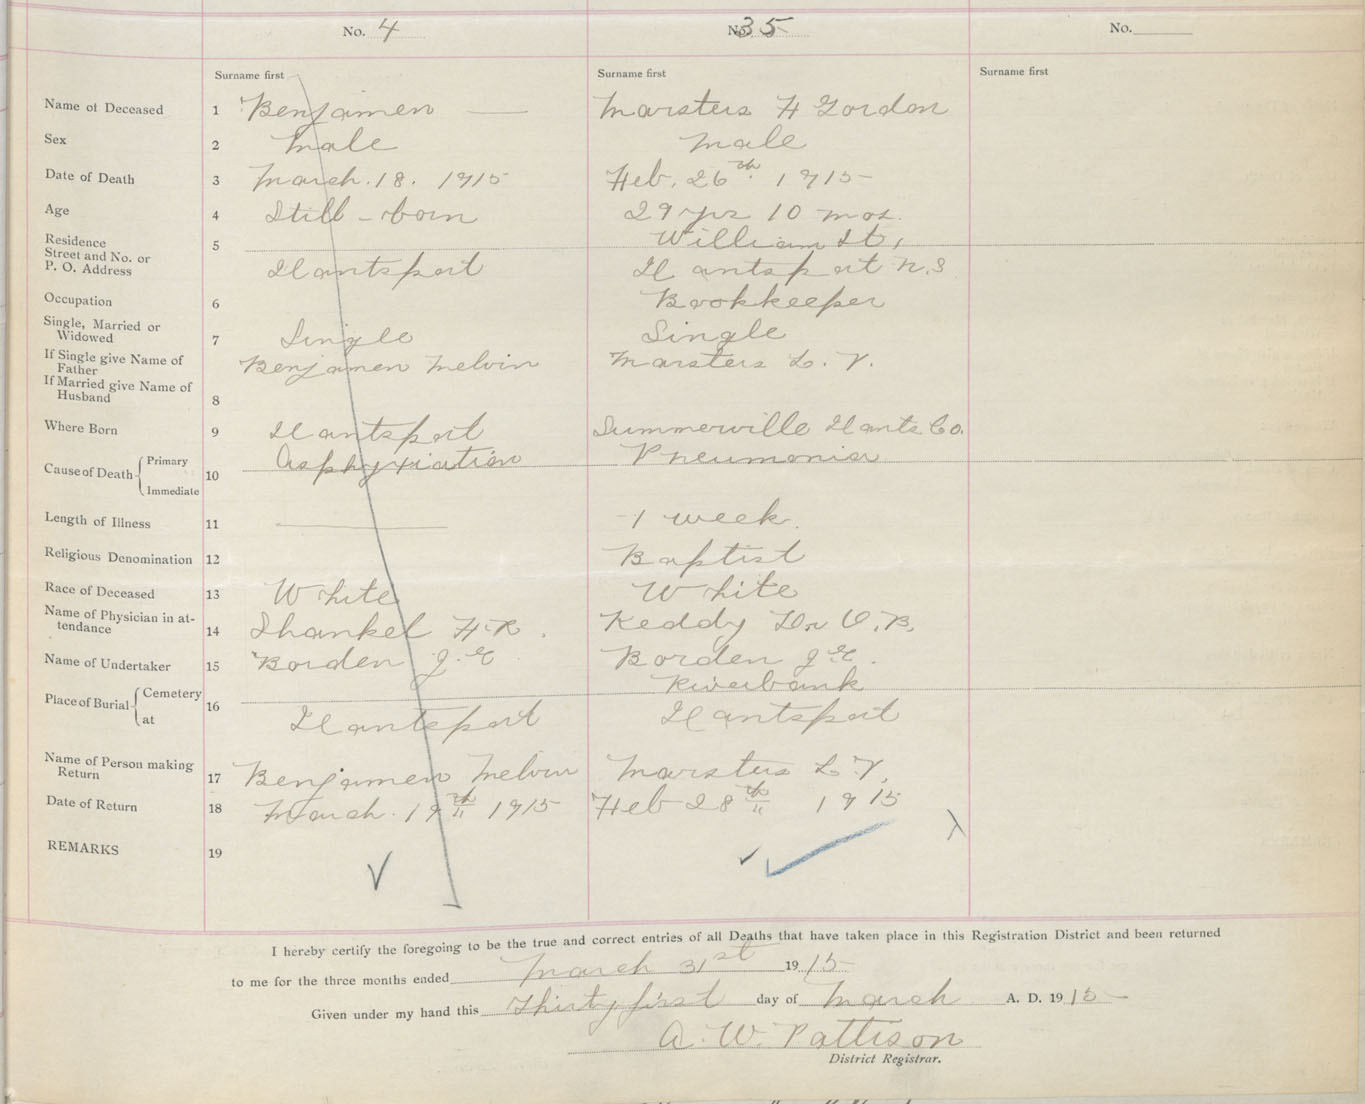 No. 4 No. 35 No.
Surname first Surname first Surname first
Name of Deceased 1 Benjamen — Marsters H Gordon
Sex 2 Male Male
Date of Death 3 March. 18. 1915 Feb. 26th 1915
Age 4 Still-born 29 yrs 10 mos.
Residence 5 William St,
Street and No. or
P. O. Address Hantsport Hantsport N.S
Occupation 6 Bookkeeper
Single, Married or
Widowed 7 Single Single
If Single give Name of
Father Benjamen Melvin Marsters L. V.
If Married give Name of
Husband 8
Where Born 9 Hantsport Summerville Hants Co.
Cause of Death Primary 10 Asphyxiation Pneumonia
Immediate
Length of Illness 11 — 1 week.
Religious Denomination 12 Baptist
Race of Deceased 13 White White
Name of Physician in at-
tendance 14 Shankel F. R. Keddy Dr O. B,
Name of Undertaker 15 Borden J. E Borden J. E.
Place of Burial Cemetery 16 Riverbank
at Hantsport Hantsport
Name of Person making
Return 17 Benjamen Melvin Marsters L. V,
Date of Return 18 March. 19th 1915 Feb 28th 1915
REMARKS 19
I hereby certify the foregoing to be the true and correct entries of all Deaths that have taken place in this Registration District and been returned
to me for the three months ended March 31st 1915
Given under my hand this Thirty first day of March A. D. 1915
A. W. Pattison
District Registrar.